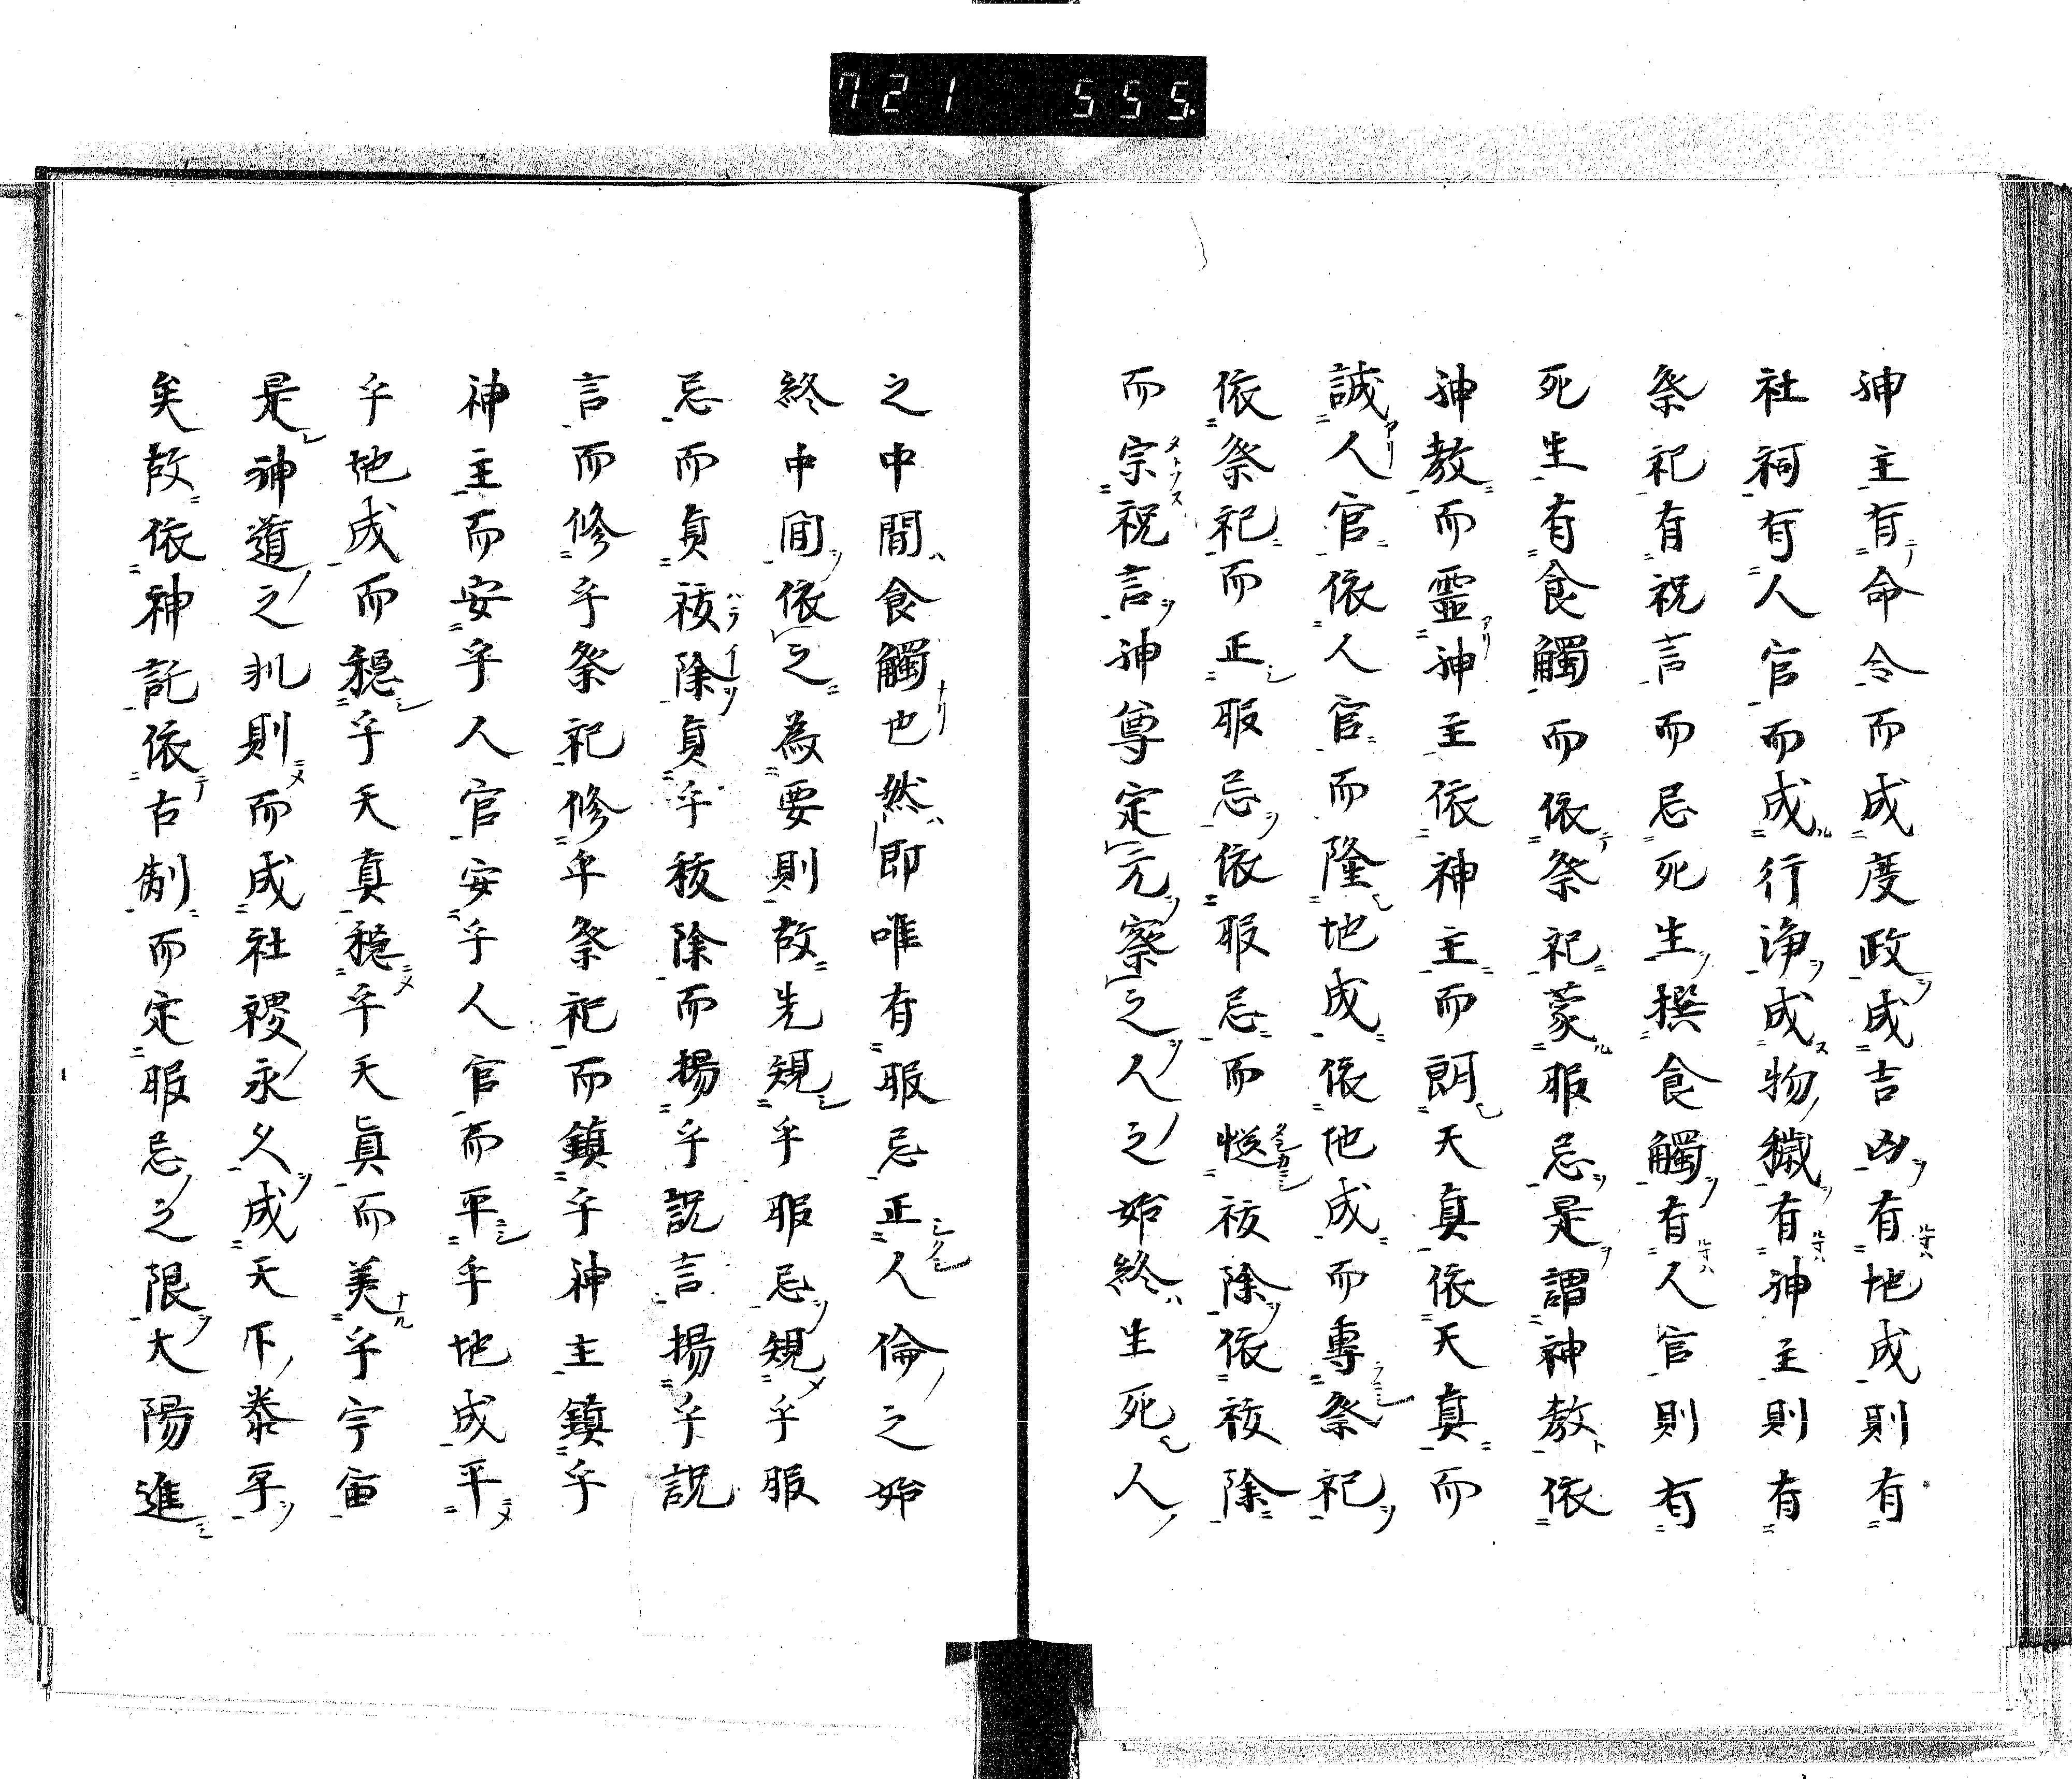 721 555.
神主有命令而成度政成吉凶有地成則有
社祠有人官而成行浄成物穢有神主則有
祭祀有祝言而忌死生撰食觸有人官則有
死生有食觸而依祭祀蒙服忌是謂神教依
神教而霊神主依神主而朗天真依天真而
誠人官依人官而隆地成依地成而專祭祀
依祭祀而正服忌依服忌而慥祓除依祓除
而宗祝言神尊定元察之人之始終生死人
之中間食觸也然即唯有服忌正人倫之始
終中間依之為要則故先規乎服忌規乎服
忌而貞祓除貞乎祓除而揚乎説言揚乎説
言而修乎祭祀修乎祭祀而鎮乎神主鎮乎
神主而安乎人官安乎人官而平乎地成平
乎地成而穏乎天真穏乎天真而美乎宇宙
是神道之軌則而成社稷永久成天下泰平
矣故依神託依古制而定服忌之限大陽進